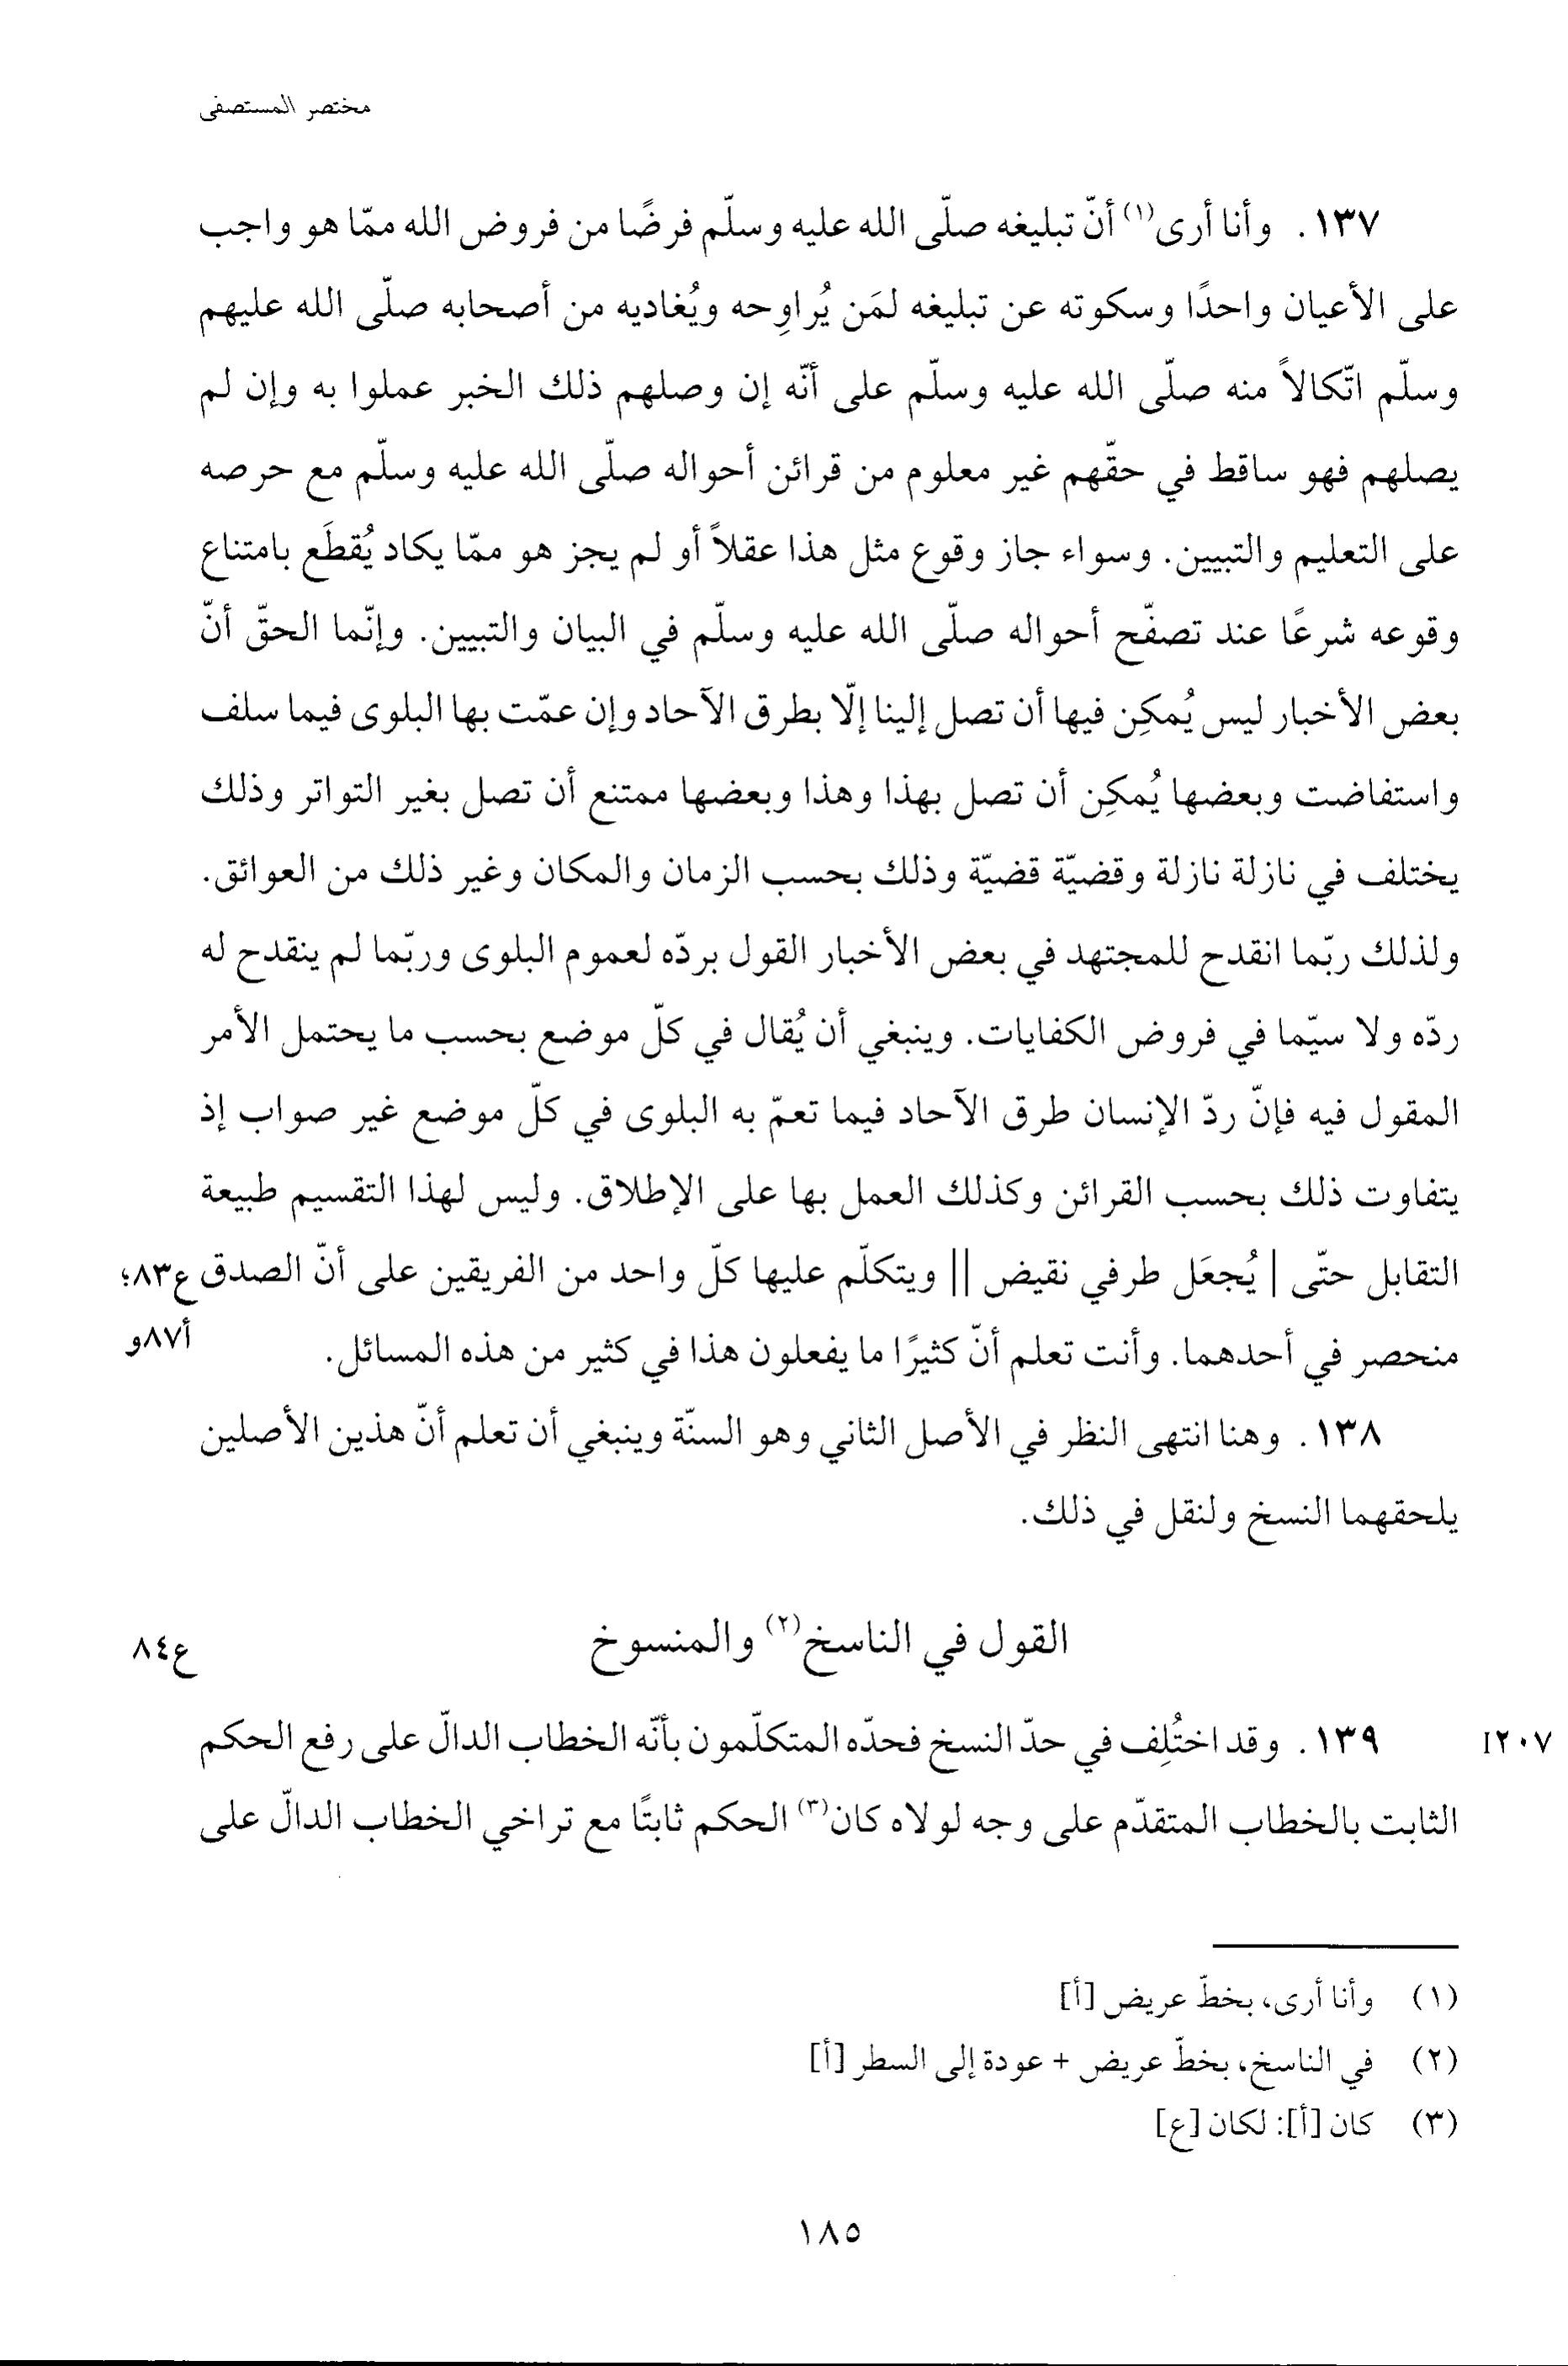 مختصر المستصفى
١٣٧. وأنا أرى(١) أنّ تبليغه صلّى الله عليه وسلّم فرضًا من فروض الله ممّا هو واجب
على الأعيان واحدًا وسكوته عن تبليغه لمَن يُراوِحه ويُغاديه من أصحابه صلّى الله عليهم
وسلّم اتّكالاً منه صلّى الله عليه وسلّم على أنّه إن وصلهم ذلك الخبر عملوا به وإن لم
يصلهم فهو ساقط في حقّهم غير معلوم من قرائن أحواله صلّى الله عليه وسلّم مع حرصه
على التعليم والتبيين. وسواء جاز وقوع مثل هذا عقلاً أو لم يجز هو ممّا يكاد يُقطَع بامتناع
وقوعه شرعًا عند تصفّح أحواله صلّى الله عليه وسلّم في البيان والتبيين. وإنّما الحقّ أنّ
بعض الأخبار ليس يُمكِن فيها أن تصل إلينا إلّا بطرق الآحاد وإن عمّت بها البلوى فيما سلف
واستفاضت وبعضها يُمكِن أن تصل بهذا وهذا وبعضها ممتنع أن تصل بغير التواتر وذلك
يختلف في نازلة نازلة وقضيّة قضيّة وذلك بحسب الزمان والمكان وغير ذلك من العوائق.
ولذلك ربّما انقدح للمجتهد في بعض الأخبار القول بردّه لعموم البلوى وربّما لم ينقدح له
ردّه ولا سيّما في فروض الكفايات. وينبغي أن يُقال في كلّ موضع بحسب ما يحتمل الأمر
المقول فيه فإنّ ردّ الإنسان طرق الآحاد فيما تعمّ به البلوى في كلّ موضع غير صواب إذ
يتفاوت ذلك بحسب القرائن وكذلك العمل بها على الإطلاق. وليس لهذا التقسيم طبيعة
التقابل حتّى | يُجعَل طرفي نقيض || ويتكلّم عليها كلّ واحد من الفريقين على أنّ الصدق ع٨٣؛
منحصر في أحدهما. وأنت تعلم أنّ كثيرًا ما يفعلون هذا في كثير من هذه المسائل. أ٨٧و
١٣٨. وهنا انتهى النظر في الأصل الثاني وهو السنّة وينبغي أن تعلم أنّ هذين الأصلين
يلحقهما النسخ ولنقل في ذلك.
القول في الناسخ(٢) والمنسوخ ع٨٤
I٢٠٧ ١٣٩. وقد اختُلِف في حدّ النسخ فحدّه المتكلّمون بأنّه الخطاب الدالّ على رفع الحكم
الثابت بالخطاب المتقدّم على وجه لولاه كان(٣) الحكم ثابتًا مع تراخي الخطاب الدالّ على
(١) وأنا أرى، بخطّ عريض [أ]
(٢) في الناسخ، بخطّ عريض + عودة إلى السطر [أ]
(٣) كان [أ]: لكان [ع]
١٨٥